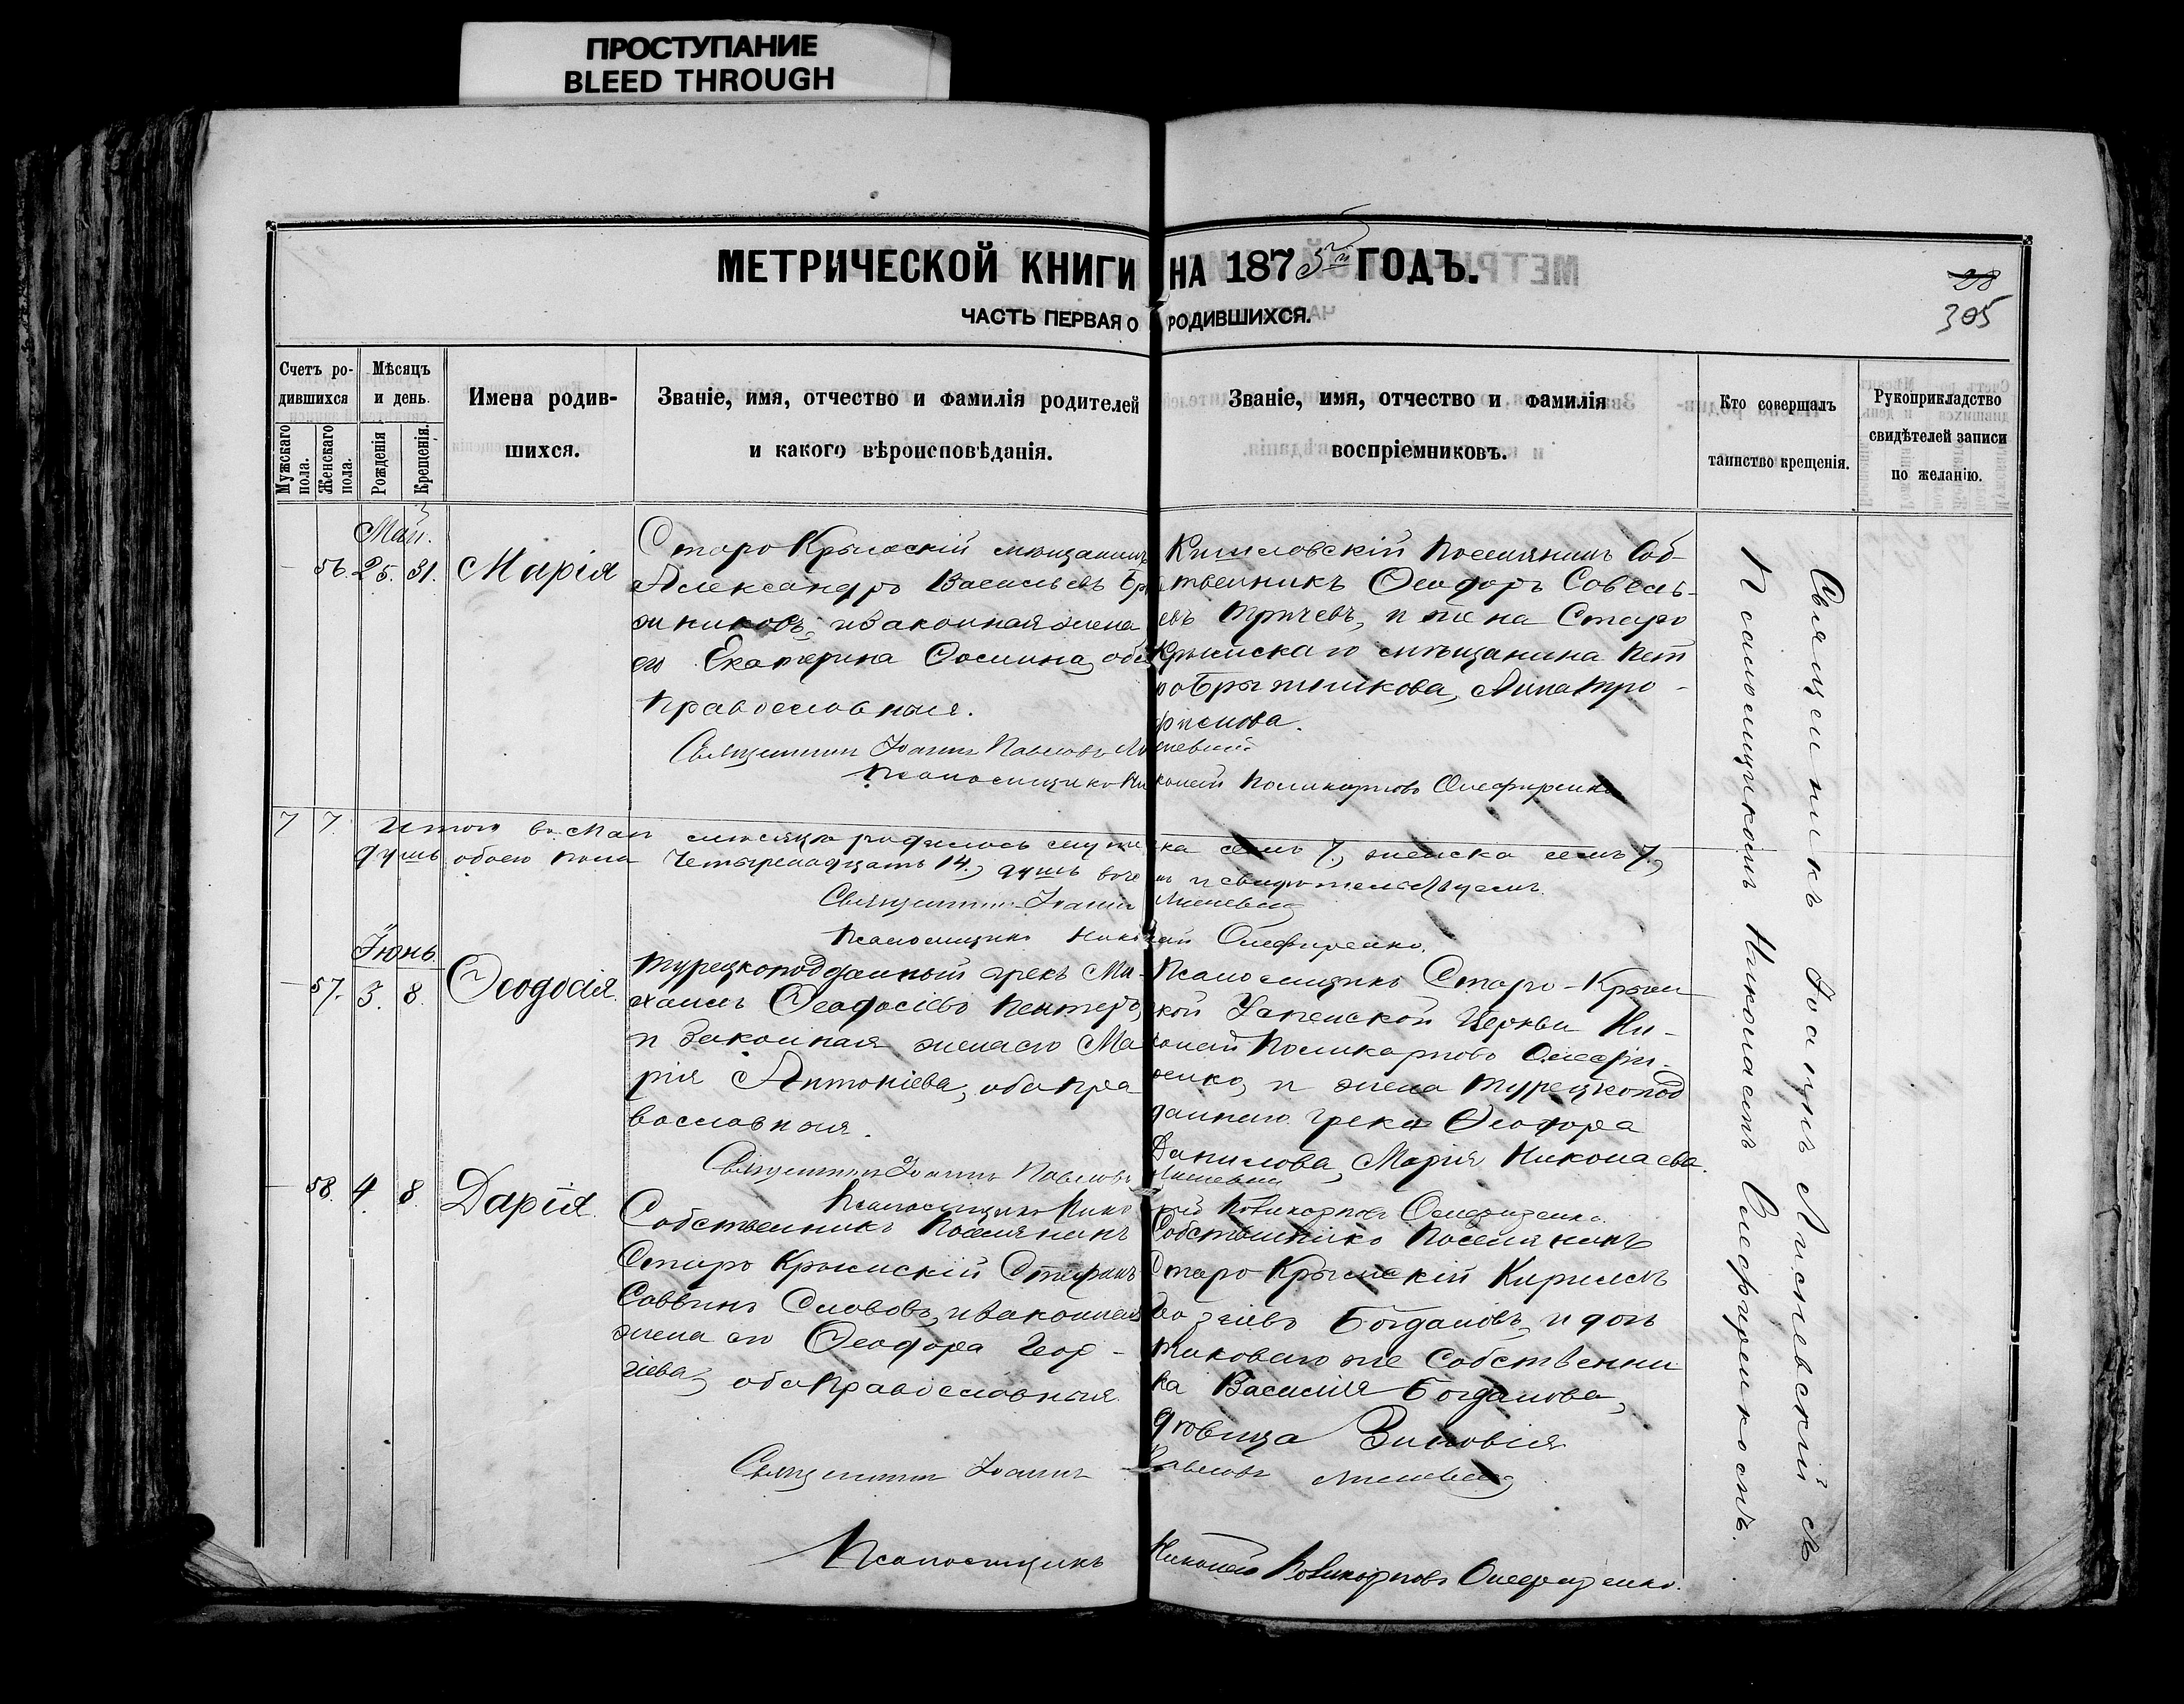 ПРОСТУПАНИЕ
BLEED THROUGH
МЕТРИЧЕСКОЙ КНИГИ НА 1875й ГОДЪ.
ЧАСТЬ ПЕРВАЯ О РОДИВШИХСЯ.
28
305
Счетъ ро-
дившихся
Мужскаго
пола.
Женскаго
пола.
Мѣсяцъ
и день.
Рожденія
Крещенія.
Имена родив-
шихся.
Званіе, имя, отчество и фамилія родителей
и какого вѣроисповѣданія.
Званіе, имя, отчество и фамилія
воспріемниковъ.
Кто совершалъ
таинство крещенія.
Рукоприкладство
свидѣтелей записи
по желанію.
Май.
56. 25. 31. Марія
Старо Крымскій мѣщанинъ
Александръ Васильевъ
и законная жена
его Екатерина Фомина, оба
Православныя.
Кишловскій Поселянинъ Соб-
твенникъ Ѳеодоръ Савель-
евъ и жена Старо
Крымскаго мѣщанина Пет
ра Брыжникова, Анна Тро-
фимова.
Священникъ Іоаннъ Павловъ Лисневскій
Псаломщикъ Николай Поликарповъ Олефиренко
7 7. Итого въ Маѣ мѣсяцѣ родилось мужеска семь 7., женска семь 7.,
душъ обоего пола четырнадцать 14., душъ въ чемъ и свидѣтельствуемъ.
Священникъ Іоаннъ Лисневскій
Псаломщикъ Николай Олефиренко.
Іюнь
57. 3. 8. Ѳеодосія.
Турецкоподданный грекъ Ми-
хаилъ Ѳеодосіевъ Пентеръ,
и законная жена его Ма
рія Антоніева, оба Пра
вославныя.
Псаломщикъ Старо-Крым
ской Успенской Церкви Ни-
колай Поликарповъ Олефи-
ренко, и жена Турецкопод
даннаго грека Ѳеодора
Данилова, Марія Николаева.
Священникъ Іоаннъ Павловъ Лисневскій
Псаломщикъ Николай Поликарповъ Олефиренко.
58. 4. 8. Дарія.
Собственникъ Поселянинъ
Старо Крымскій Стефанъ
Саввинъ Словов, и законная
жена его Ѳеодора Геор-
гіева, оба Православныя.
Собственникъ Поселянинъ
Старо Крымскій Кириллъ
Богдановъ, и дочь
таковаго же Собственни
ка Василія Богданова,
дѣвица Зиновія
Священникъ Іоаннъ Павловъ Лисневскій
Псаломщикъ Николай Поликарповъ Олефиренко.
Священникъ Іоаннъ Лисневскій съ
Псаломщикомъ Николаемъ Олефиренкомъ.